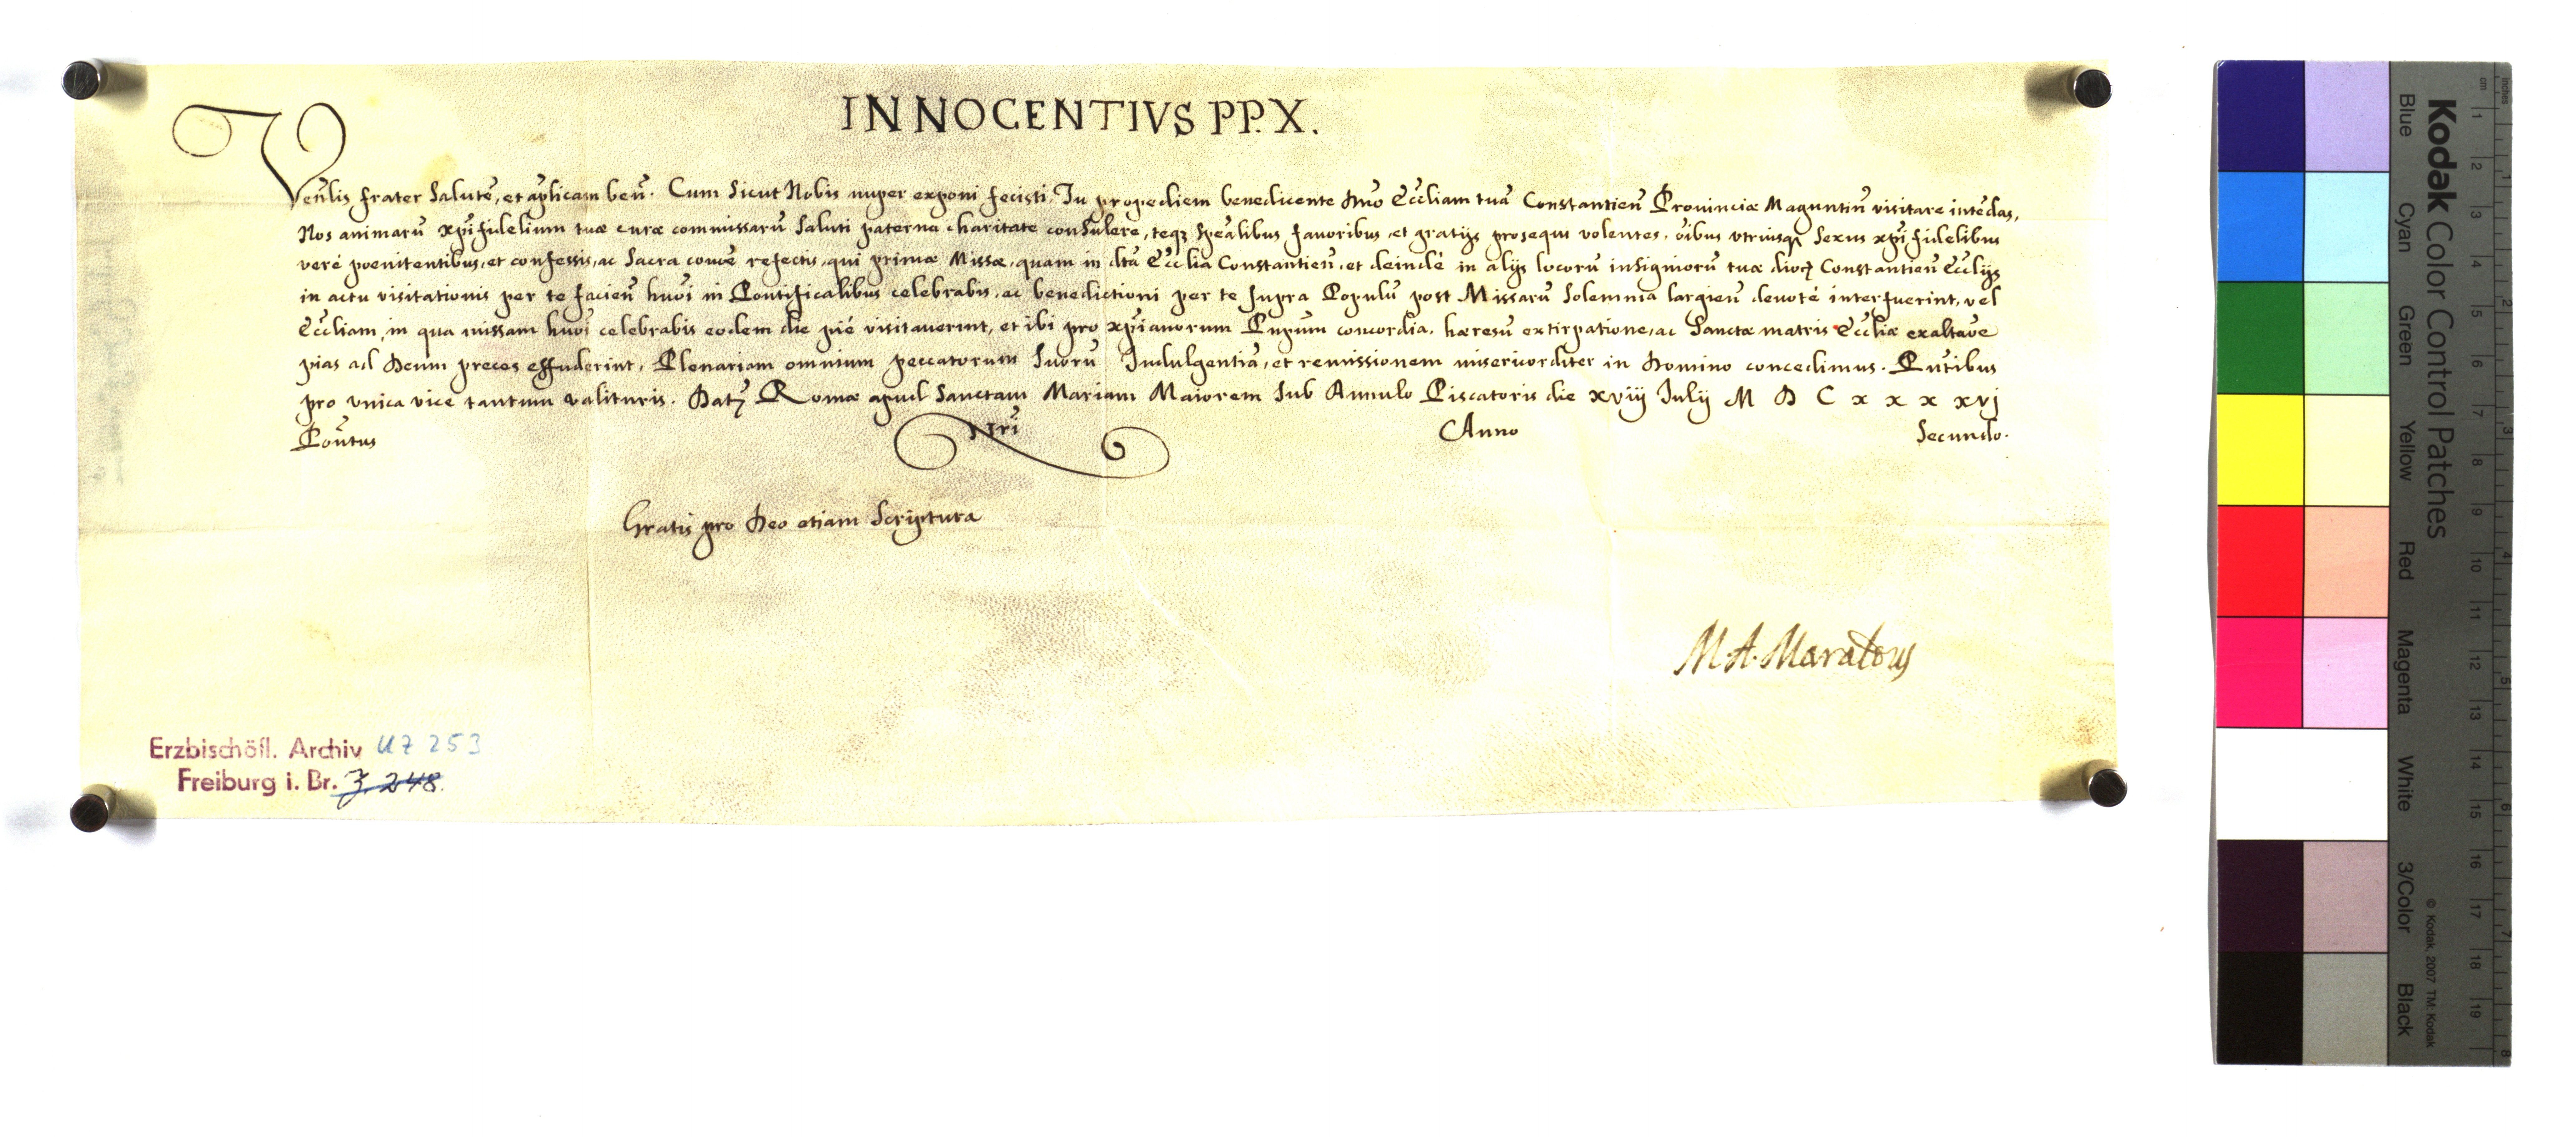 INNOCENTIVS PP. X.
Veñlis frater Salutẽ, et ap̃licam beñ. Cum Sicut Nobis nuper exponi fecisti, Tu propediem benedicente Dño Ecc̃liam tuã Constantieñ Prouinciæ Maguntiñ visitare intẽdas,
Nos animarũ xp̃ifidelium tuæ curæ commissarũ Saluti paterna charitate consulere, teq3 Spẽalibus fauoribus, et gratijs prosequi volentes, oĩbus vtriusq3 Sexus xp̃ifidelibus
verè poenitentibus, et confessis, ac Sacra coniõe refectis, qui primæ Missæ, quam in dtã Ecc̃lia Constantieñ, et deindè in alijs locorũ insigniorũ tuæ dioc̃ Constantieñ Ecc̃lijs
in actu visitationis per te facieñ huõi in Pontificalibus celebrabis, ac benedictioni per te Supra Populũ post Missarũ Solemnia largieñ deuotè interfuerint, vel
Ecc̃liam, in qua missam huõi celebrabis eodem die piè visitauerint, et ibi pro xp̃ianorum Pñpum concordia, hæresũ extirpatione, ac Sanctæ matris Ecc̃liæ exaltaõe
pias ad Deum preces effuderint, Plenariam omnium peccatorum Suorũ Indulgentiã, et remissionem misericorditer in Domino concedimus. Pñtibus
pro vnica vice tantum valituris. Dat3 Romæ apud Sanctam Mariam Maiorem Sub Annulo Piscatoris die xviij Iulij M D C x x x xvj
Poñtus Nri Anno Secundo.
Gratis pro Deo etiam Scriptura
M. A. Maraldus
Erzbischöfl. Archiv UZ 253
Freiburg i. Br. Z. 248.
Kodak Color Control Patches
Blue Cyan Green Yellow Red Magenta White 3/Color Black
© Kodak, 2007 TM: Kodak
cm 1 2 3 4 5 6 7 8 9 10 11 12 13 14 15 16 17 18 19
inches 1 2 3 4 5 6 7 8